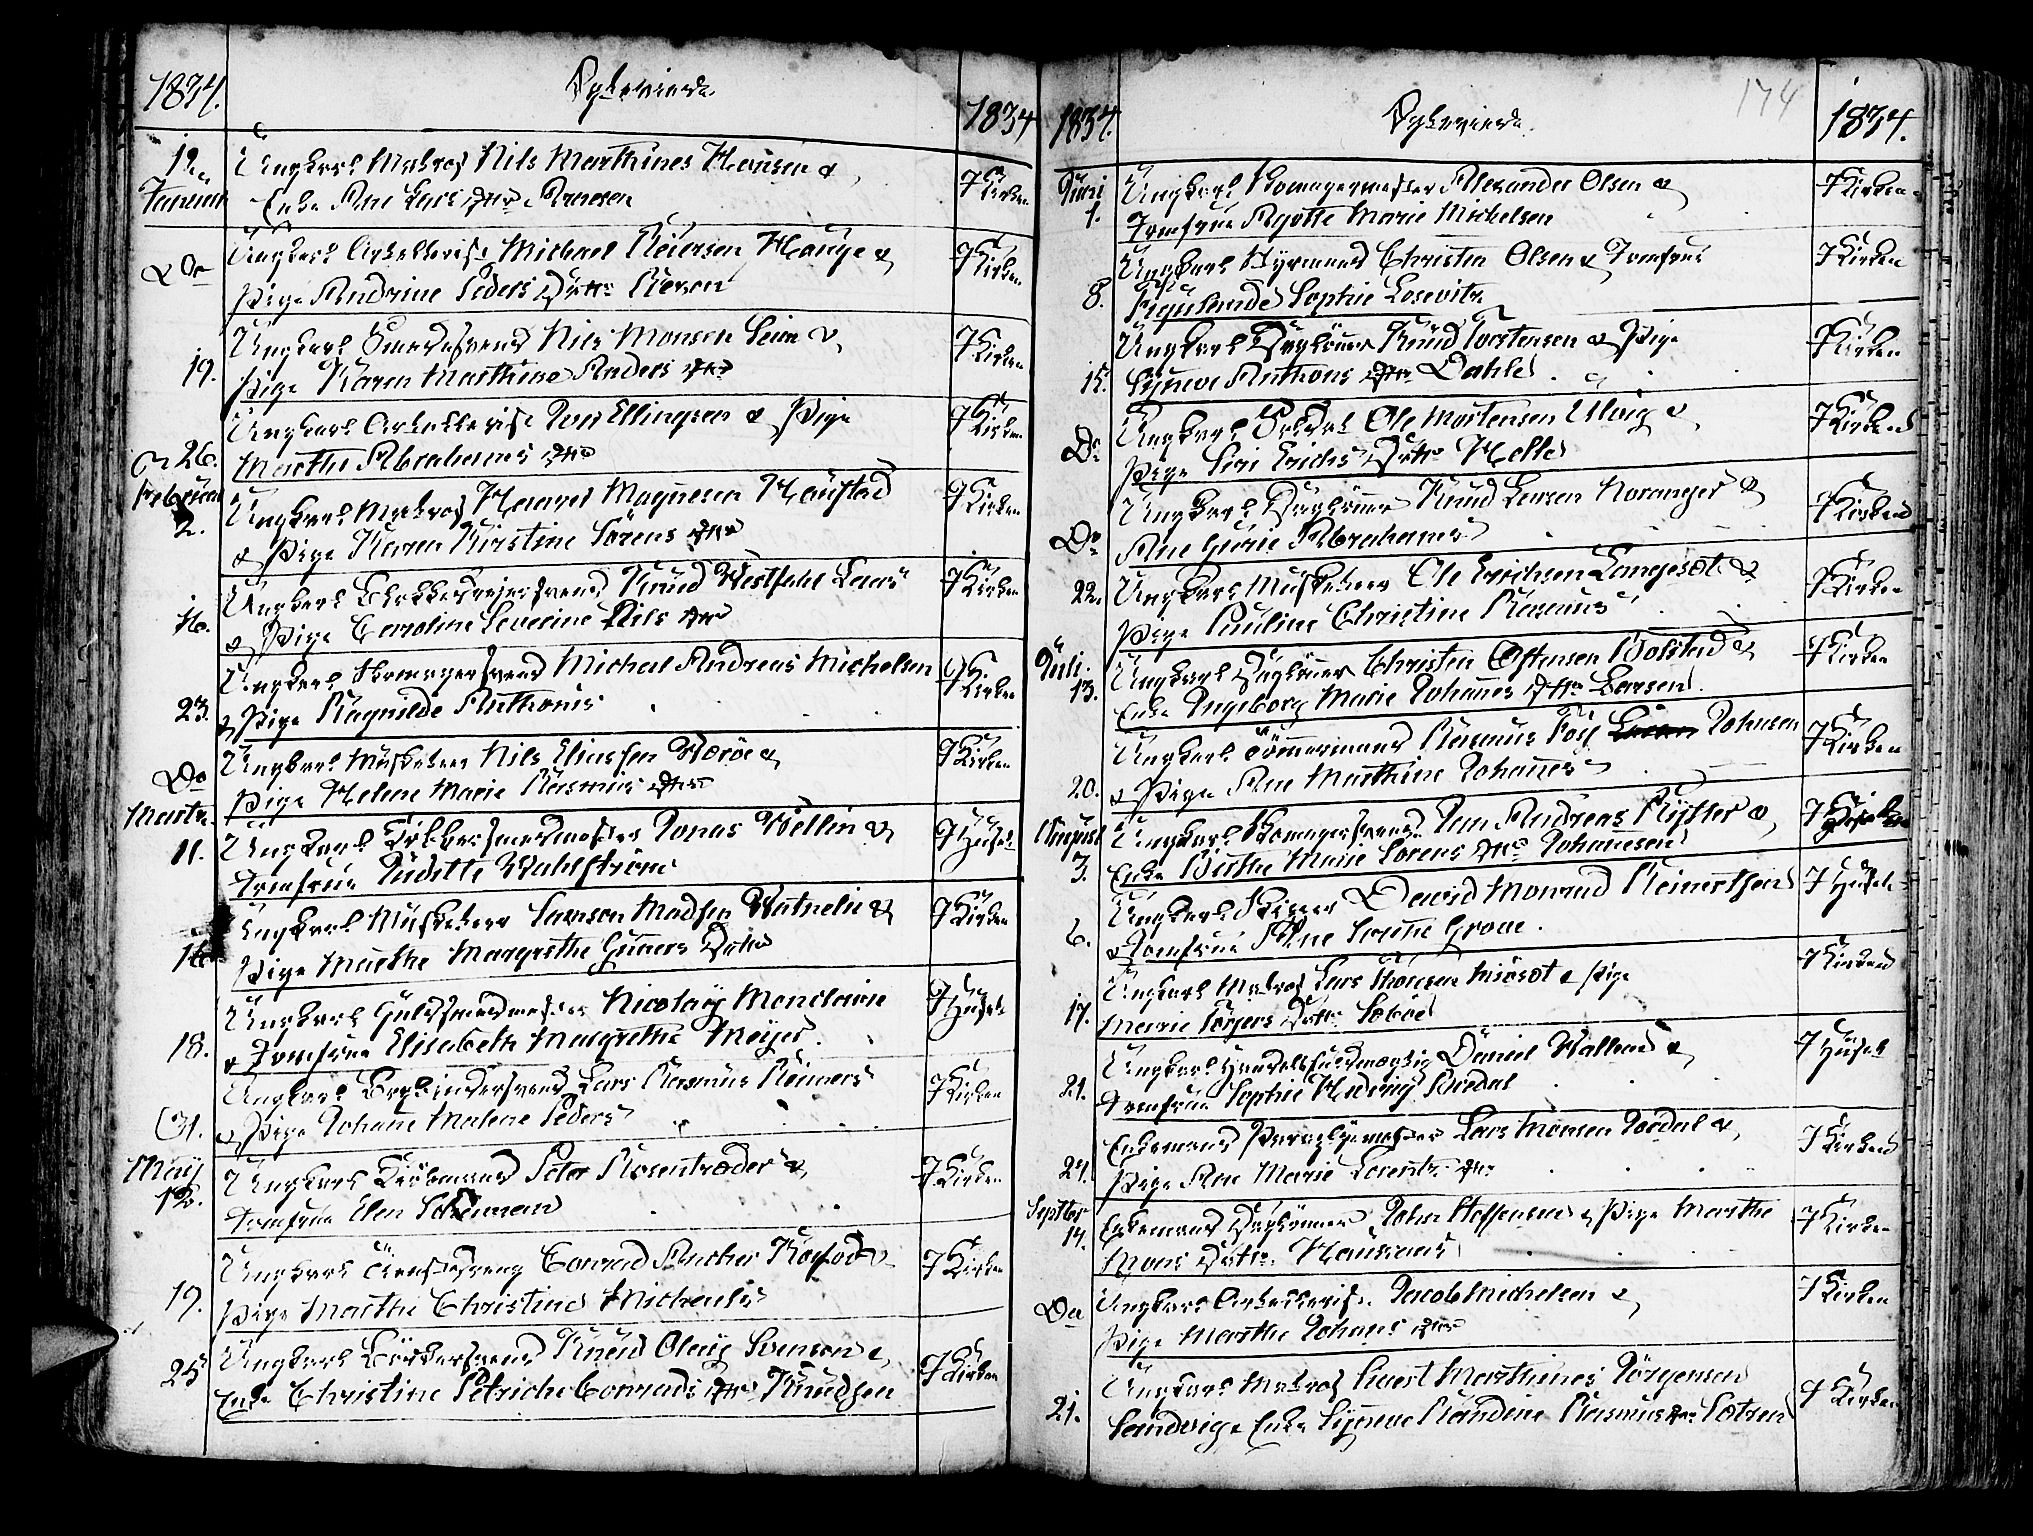 1834.
Egteviede
1834
12
Januari
Ungkarl Matros Nils Marthines Hansen &
Enke Ane Lars Dttr Arnesen
I Kirken
Do
Ungkarl Arbeidsm Michael Peiersen Hauge &
Pige Andrine Peders Dttr Steren
I Kirken
19.
Ungkarl Smedesvend Nils Monsen Seim &
Pige Karen Marthine Anders Dttr
I Kirken
26.
Ungkarl Iver Ellingsen & Pige
Marthe Abrahames Dttr
I Kirken
Februari
2.
Ungkarl Matros Haagen Magnesen Haustad
& Pige Karen Kirstine Sørens Dttr
I Kirken
16.
Ungkarl Blokkedreiersvend Knud Westfahl Laers
& Pige Caroline Severine Nils Dttr
I Kirken
23.
Ungkarl Skomagersvend Michael Andreas Michelsen
& Pige Ragnilde Anthonis
I Kirken
Do
Ungkarl Musketeer Nils Eliassen Værøe &
Pige Helene Marie Rasmus Dttr
I Kirken
Marts
11.
Ungkarl Kobbersmedmester Jonas Wellin &
Jomfrue Judette Wahlstrøm
I Huset
16
Ungkarl Musketeer Samson Madsen Watnelie &
Pige Marthe Margrethe Guners Dttr
I Kirken
18.
Ungkarl Guldsmedmester Nicolay Monclaire
& Jomfrue Elisabeth Margrethe Meyer.
I Huset
31.
Ungkarl Bogbindersvend Lars Rasmus Reimers
& Pige Johane Malene Peders
I Kirken
May
12.
Ungkarl Kiøbmand Peter Rosentræder &
Jomfrue Elen
I Kirken
19.
Ungkarl Conrad Ancher Kofod &
Pige Marthe Christine Michaels
I Kirken
25
Ungkarl Bødkersvend Knud Olaus Svenson &
Enke Christine Petriche Conrads Dttr Knudsen
I Kirken
1834.
Egteviede.
174
1834.
Juni
1.
Ungkarl Skomagermester Alexander Olsen &
Jomfrue Agotte Marie Michelsen
I Kirken
8.
Ungkarl Styrmand Christen Olsen & Jomfrue
Sophie Losevitz
I Kirken
15.
Ungkarl Dagleiner Knud Torstensen & Pige
Synneve Anthons Dttr Dahle
I Kirken
Do
Ungkarl Soldat Ole Mortensen Ulvig &
Pige Siri Erichs Datter Helle
I Kirken
Do
Ungkarl Dagleiner Knud Larsen Noranger &
Ane Gurie Abrahames
I Kirken
22.
Ungkarl Musketeer Ole Erichsen Langesæt &
Pige Pauline Christine Rasmus
I Kirken
Juli.
13.
Ungkarl Dagleiner Christen Østensen Bolstad &
Enke Ingeborg Marie Johanes Dttr Larsen
I Kirken
20.
Ungkarl Tømmermand Rasmus Foss Johnsen
& Pige Ane Marthine Johanes
I Kirken
August
3.
Ungkarl Skomagersvend Jan Andreas Ryster &
Enke Birthe Marie Sørens Dttr Johanesen
I
6.
Ungkarl Skipper David Monrad Reinertsen
& Jomfrue Ane Sophie Grove.
I Huset
17.
Ungkarl Matros Lars Thomsen Misæt & Pige
Marie Torgers Datter Sæbøe
I Kirken
21.
Ungkarl Handelsfuldmægtig Daniel Walland &
Jomfrue Sophie Hedevig Riedal
I Huset
24.
Enkemand Lars Monsen Aardal &
Pige Ane Marie Larents Dttr
I Kirken
Septbr
14.
Enkemand Dagleiner John Steffensen & Pige Marthe
Mons Datter Hausmans
I Kirken
Do
Ungkarl Arbeidsm Jacob Michelsen &
Pige Marthe Johanes Dttr
I Kirken
21.
Ungkarl Matros Sivert Marthines Jørgensen
Sandvig & Enke Synneve Randine Rasmus Dttr Sætren
I Kirken